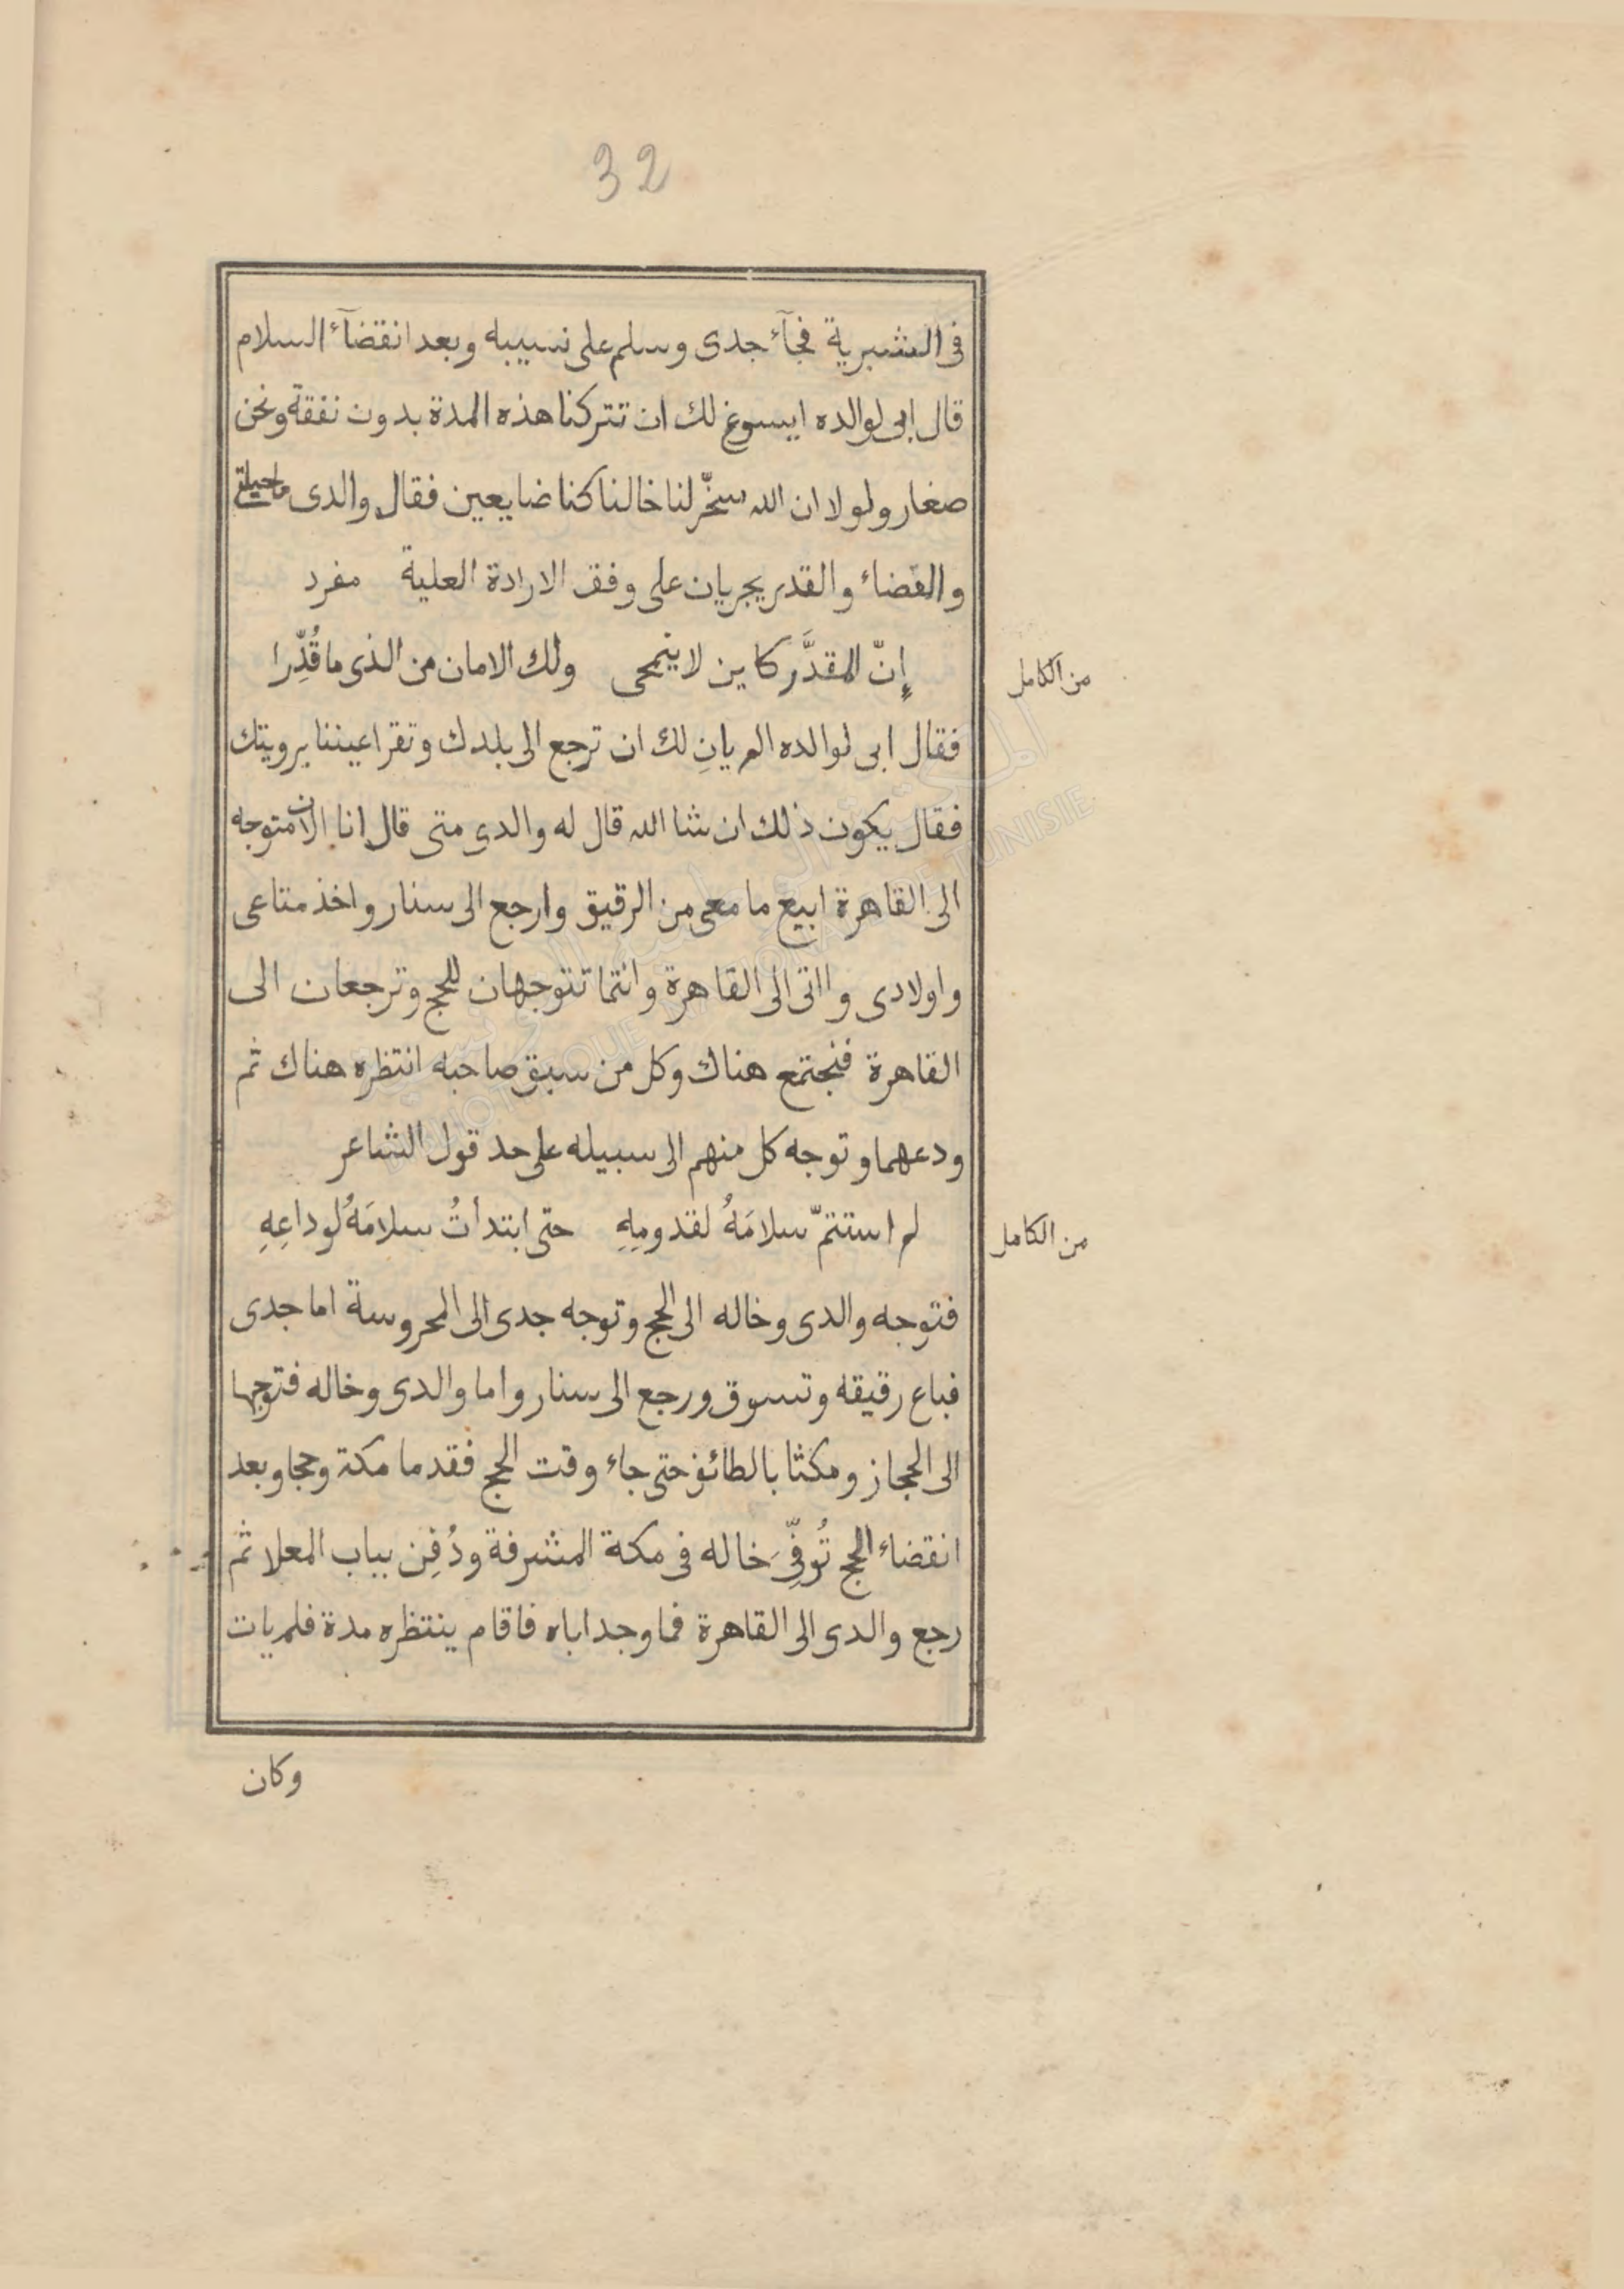 32
فى العشبرية فجآء جدى وسلم على نسيبه وبعد انقضآء السلام
قال ابى لوالده ايسوغ لك ان تتركنا هذه المدة بدون نفقة ونحن
صغار ولولا ان الله سخّر لنا خالنا كنا ضايعين فقال والدى ما حيلتى
والقضاء والقدر يجريان على وفق الارادة العلية مفرد
إنّ المقدَّر كاين لا ينمحى ولك الامان من الذى ما قُدِّرا
من الكامل
فقال ابى لوالده الم يانِ لك ان ترجع الى بلدك وتقر اعيننا برويتك
فقال يكون ذلك ان شا الله قال له والدى متى قال انا الان متوجه
الى القاهرة ابيع ما معى من الرقيق وارجع الى سنار واخذ متاعى
واولادى وااتى الى القاهرة وانتما تتوجهان للحج وترجعان الى
القاهرة فنجتمع هناك وكل من سبق صاحبه انتظره هناك ثم
ودعهما وتوجه كل منهم الى سبيله على حد قول الشاعر
لم استتمّ سلامَهُ لقدومِهِ حتى ابتدأتُ سلامَهُ لوداعِهِ
من الكامل
فتوجه والدى وخاله الى الحج وتوجه جدى الى المحروسة اما جدى
فباع رقيقه وتسوق ورجع الى سنار واما والدى وخاله فتوجها
الى الحجاز ومكثا بالطائف حتى جاء وقت الحج فقدما مكة وحجا وبعد
انقضاء الحج تُوفِّىَ خاله فى مكة المشرفة ودُفِن بباب المعلا ثم
رجع والدى الى القاهرة فما وجد اباه فاقام ينتظره مدة فلم يات
وكان